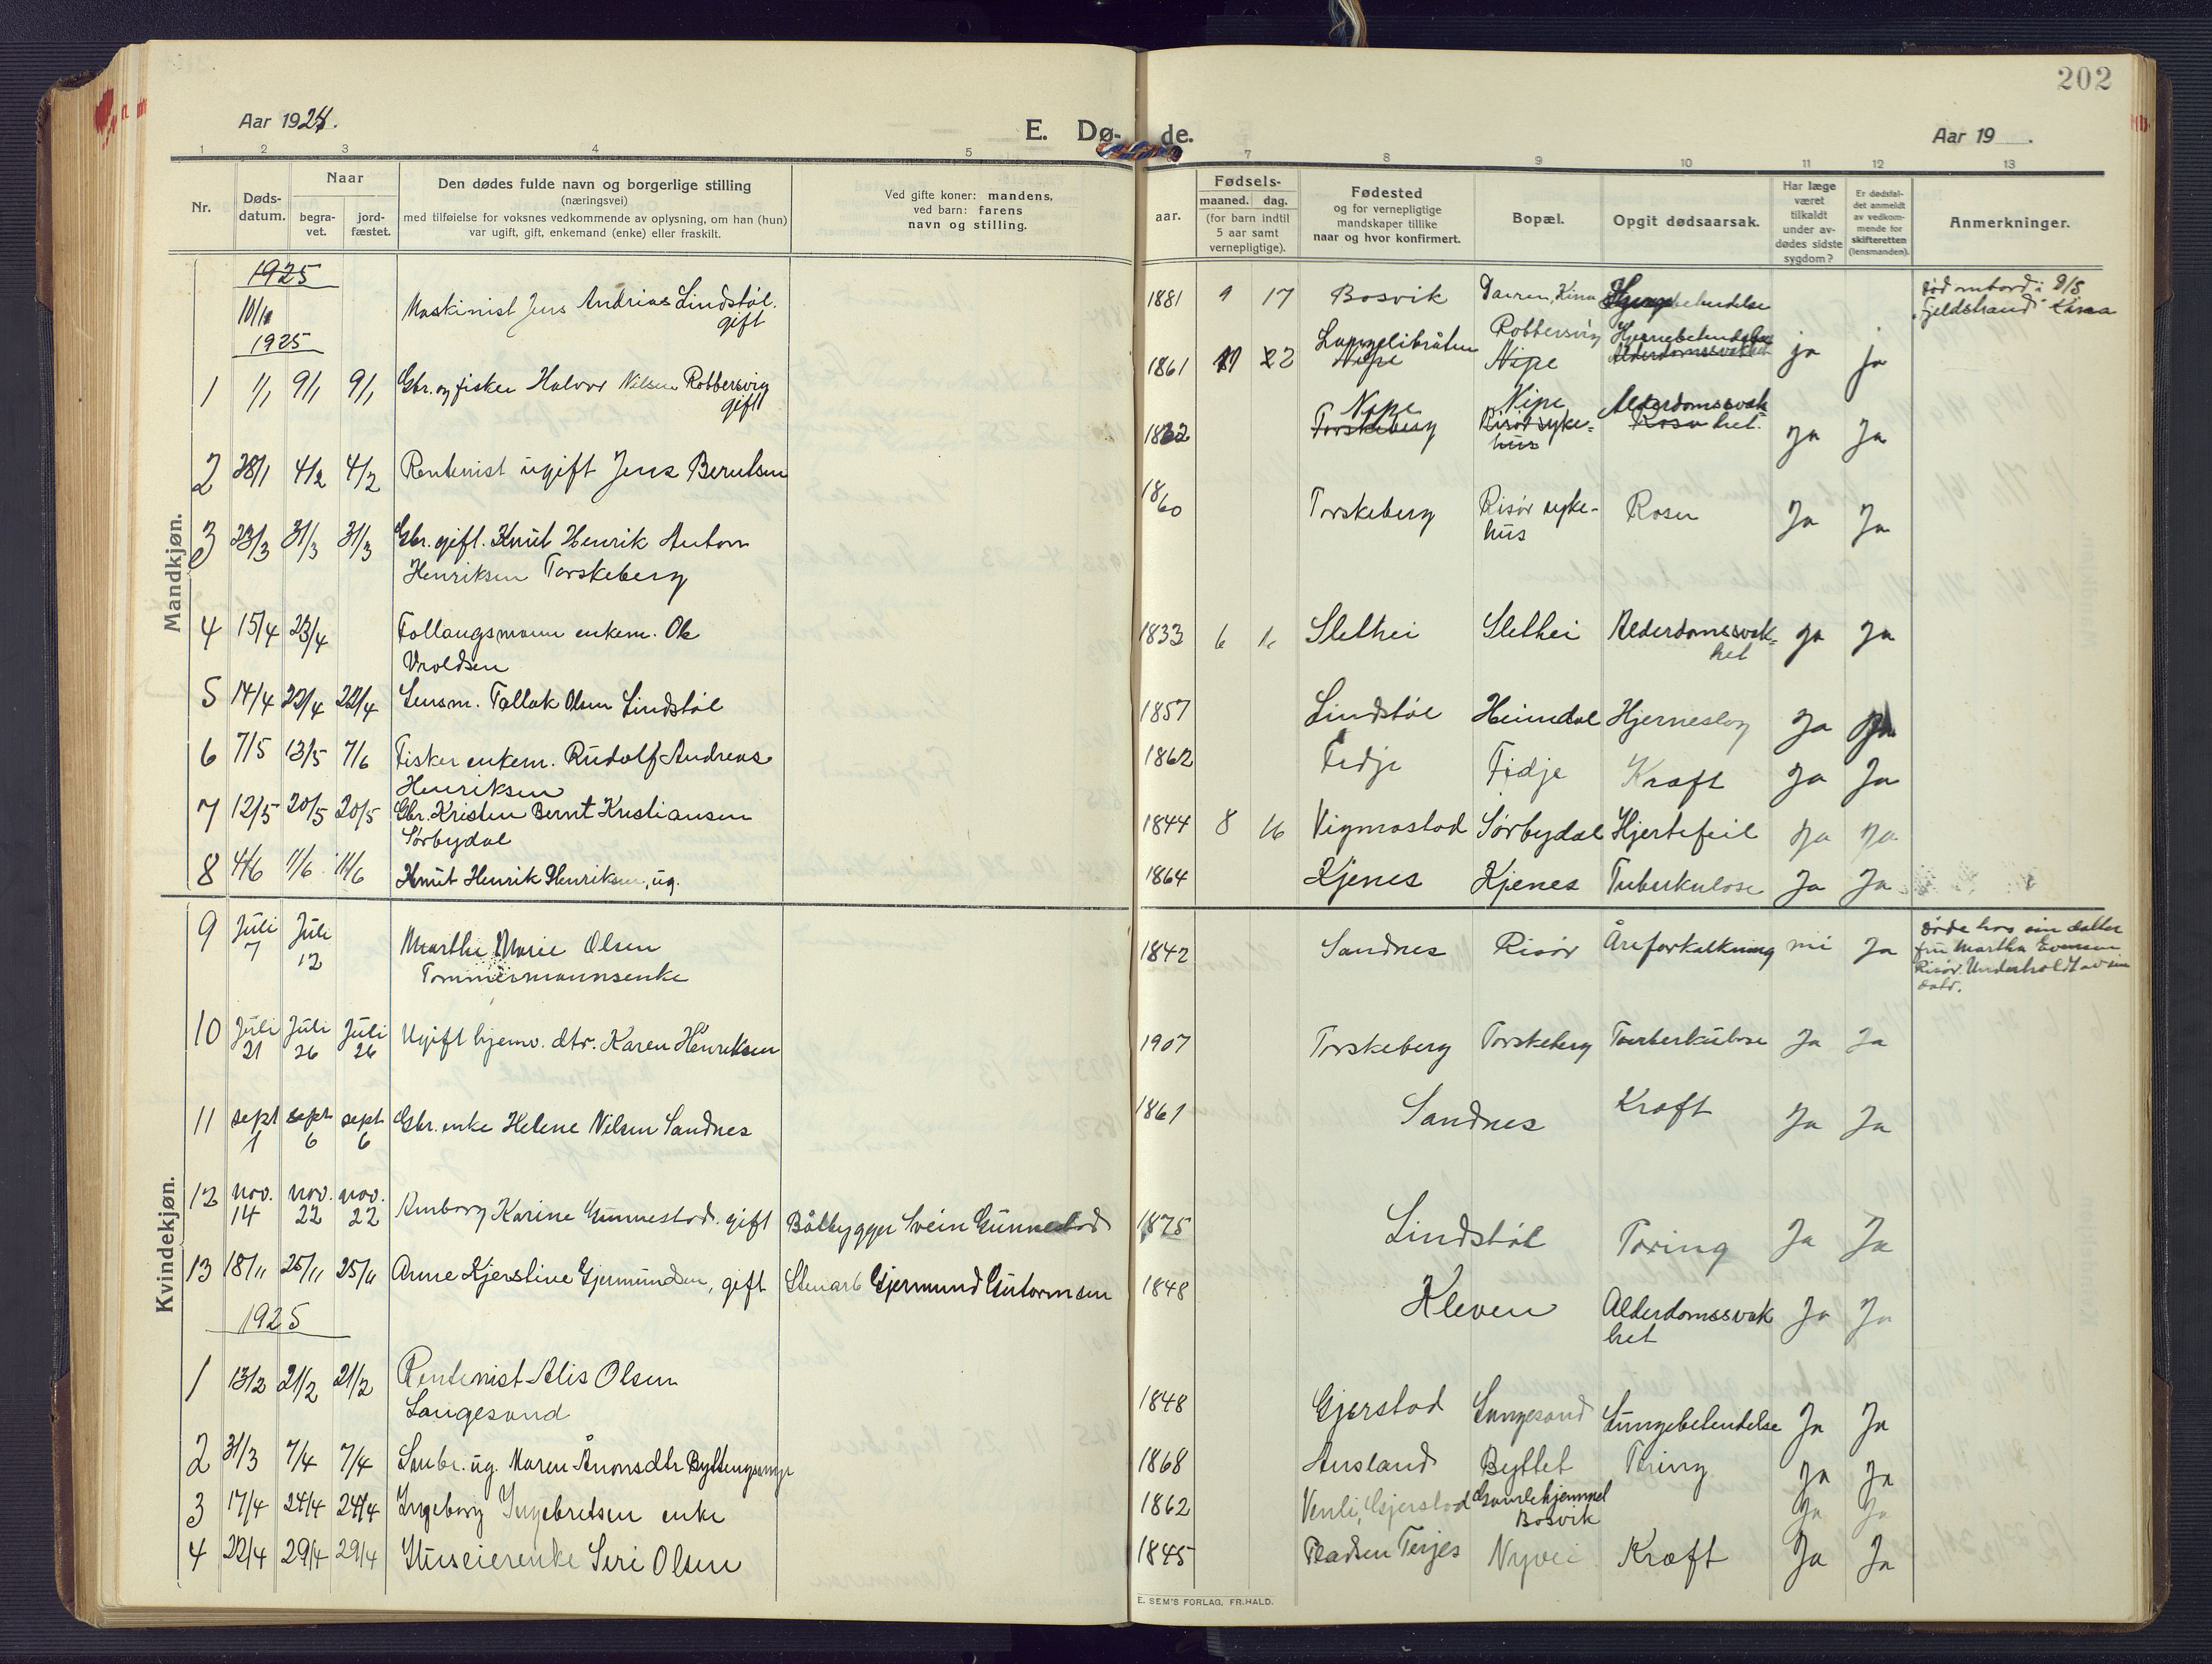 202
Aar 1924.
E. Dø-
de.
Aar 19 .
1 2 3 4 5 7 8 9 10 11 12 13
Nr.
Døds-
datum.
Naar
begra-
vet.
jord-
fæstet.
Den dødes fulde navn og borgerlige stilling
(næringsvei)
med tilføielse for voksnes vedkommende av oplysning, om han (hun)
var ugift, gift, enkemand (enke) eller fraskilt.
Ved gifte koner: mandens,
ved barn: farens
navn og stilling.
Fødsels-
aar.
maaned.
dag.
(for barn indtil
5 aar samt
vernepligtige).
Fødested
og for vernepligtige
mandskaper tillike
naar og hvor konfirmert.
Bopæl.
Opgit dødsaarsak.
Har læge
været
tilkaldt
under av-
dødes sidste
sygdom?
Er dødsfal-
det anmeldt
av vedkom-
mende for
skifteretten
(lensmanden).
Anmerkninger.
Mandkjøn.
1925
Maskinist Jens Andrias Lindstøl. 1881 9 17 Bosvik
gift
død ombord i D/S
"Fjeldstrand" Kina
1925
1 1/1 9/1 9/1 Gbr. og fisker Halvor Nilsen Robbersvig 1861 22 Robbersvig Hjernebetendelse ja ja
gift
Nipe Nipe Alderdomssvak
2 28/1 4/2 4/2 Rentenist ugift Jens Berntsen Torskeberg Risør syke- Rosen het. Ja Ja
hus
3 23/3 31/3 31/3 Gbr. gift. Knut Henrik Anton 1860 Torskeberg Risør syke- Rosen Ja Ja
Henriksen Torskeberg hus
4 15/4 23/4 Follaugsmann enkem. Ole 1833 6 Slethei Slethei Alderdomssvak- Ja Ja
Vroldsen het
5 14/4 22/4 22/4 Lensm. Tallak Olsen Lindstøl 1857 Lindstøl Heimdal Hjerneslag Ja Ja
6 7/5 13/5 7/6 Fisker enkem. Rudolf Andreas 1862 Fidje Fidje Kræft Ja Ja
Henriksen
7 12/5 20/5 20/5 Gbr. Kristen Bernt Kristiansen 1844 8 16 Vigmostad Sørbydal Hjertefeil Ja Ja
Sørbydal
8 4/6 11/6 11/6 Knut Henrik Henriksen, ug. 1864 Kjenes Kjenes Tuberkulose Ja Ja
Kvindekjøn.
9 Juli 7 Juli 12 Marthe Marie Olsen 1842 Sandnes Risør Åreforkalkning Ja
Tømmermannsenke
Døde hos sin datter
fru Martha Evensen
Risør. Underholdt av sin
datr.
10 Juli 21 Juli 26 Juli 26 Ugift hjemv. dtr. Karen Henriksen 1907 Torskeberg Torskeberg Tuberkulose Ja Ja
11 sept 1 sept 6 sept 6 Gbr. enke Helene Nilsen Sandnes 1861 Sandnes Kræft Ja Ja
12 nov. 14 nov. 22 nov. 22 Amborg Karine Gunnestad. gift Båtbygger Svein Gunnestad 1875 Lindstøl Tæring Ja Ja
13 18/11 25/11 25/11 Anne Kjerstine Gjermundsen, gift Stenarb Gjermund Gutormsen 1848 Kleven Alderdomssvak Ja Ja
het
1925
1 13/2 21/2 21/2 Rentenist Alis Olsen 1848 Gjerstad Langesand Lungebetendelse Ja Ja
Langesand
2 31/3 7/4 7/4 Maren Ånonsdtr 1868 Ausland Byttet Tæring Ja Ja
3 17/4 24/4 24/4 Ingeborg Ingebretsen enke 1862 Venli, Gjerstad Gamlehjemmet Ja Ja
Bosvik
4 22/4 29/4 29/4 Huseierenke Seri Olsen 1845 Nyvei Kræft Ja Ja
E. SEM'S FORLAG, FR.HALD.